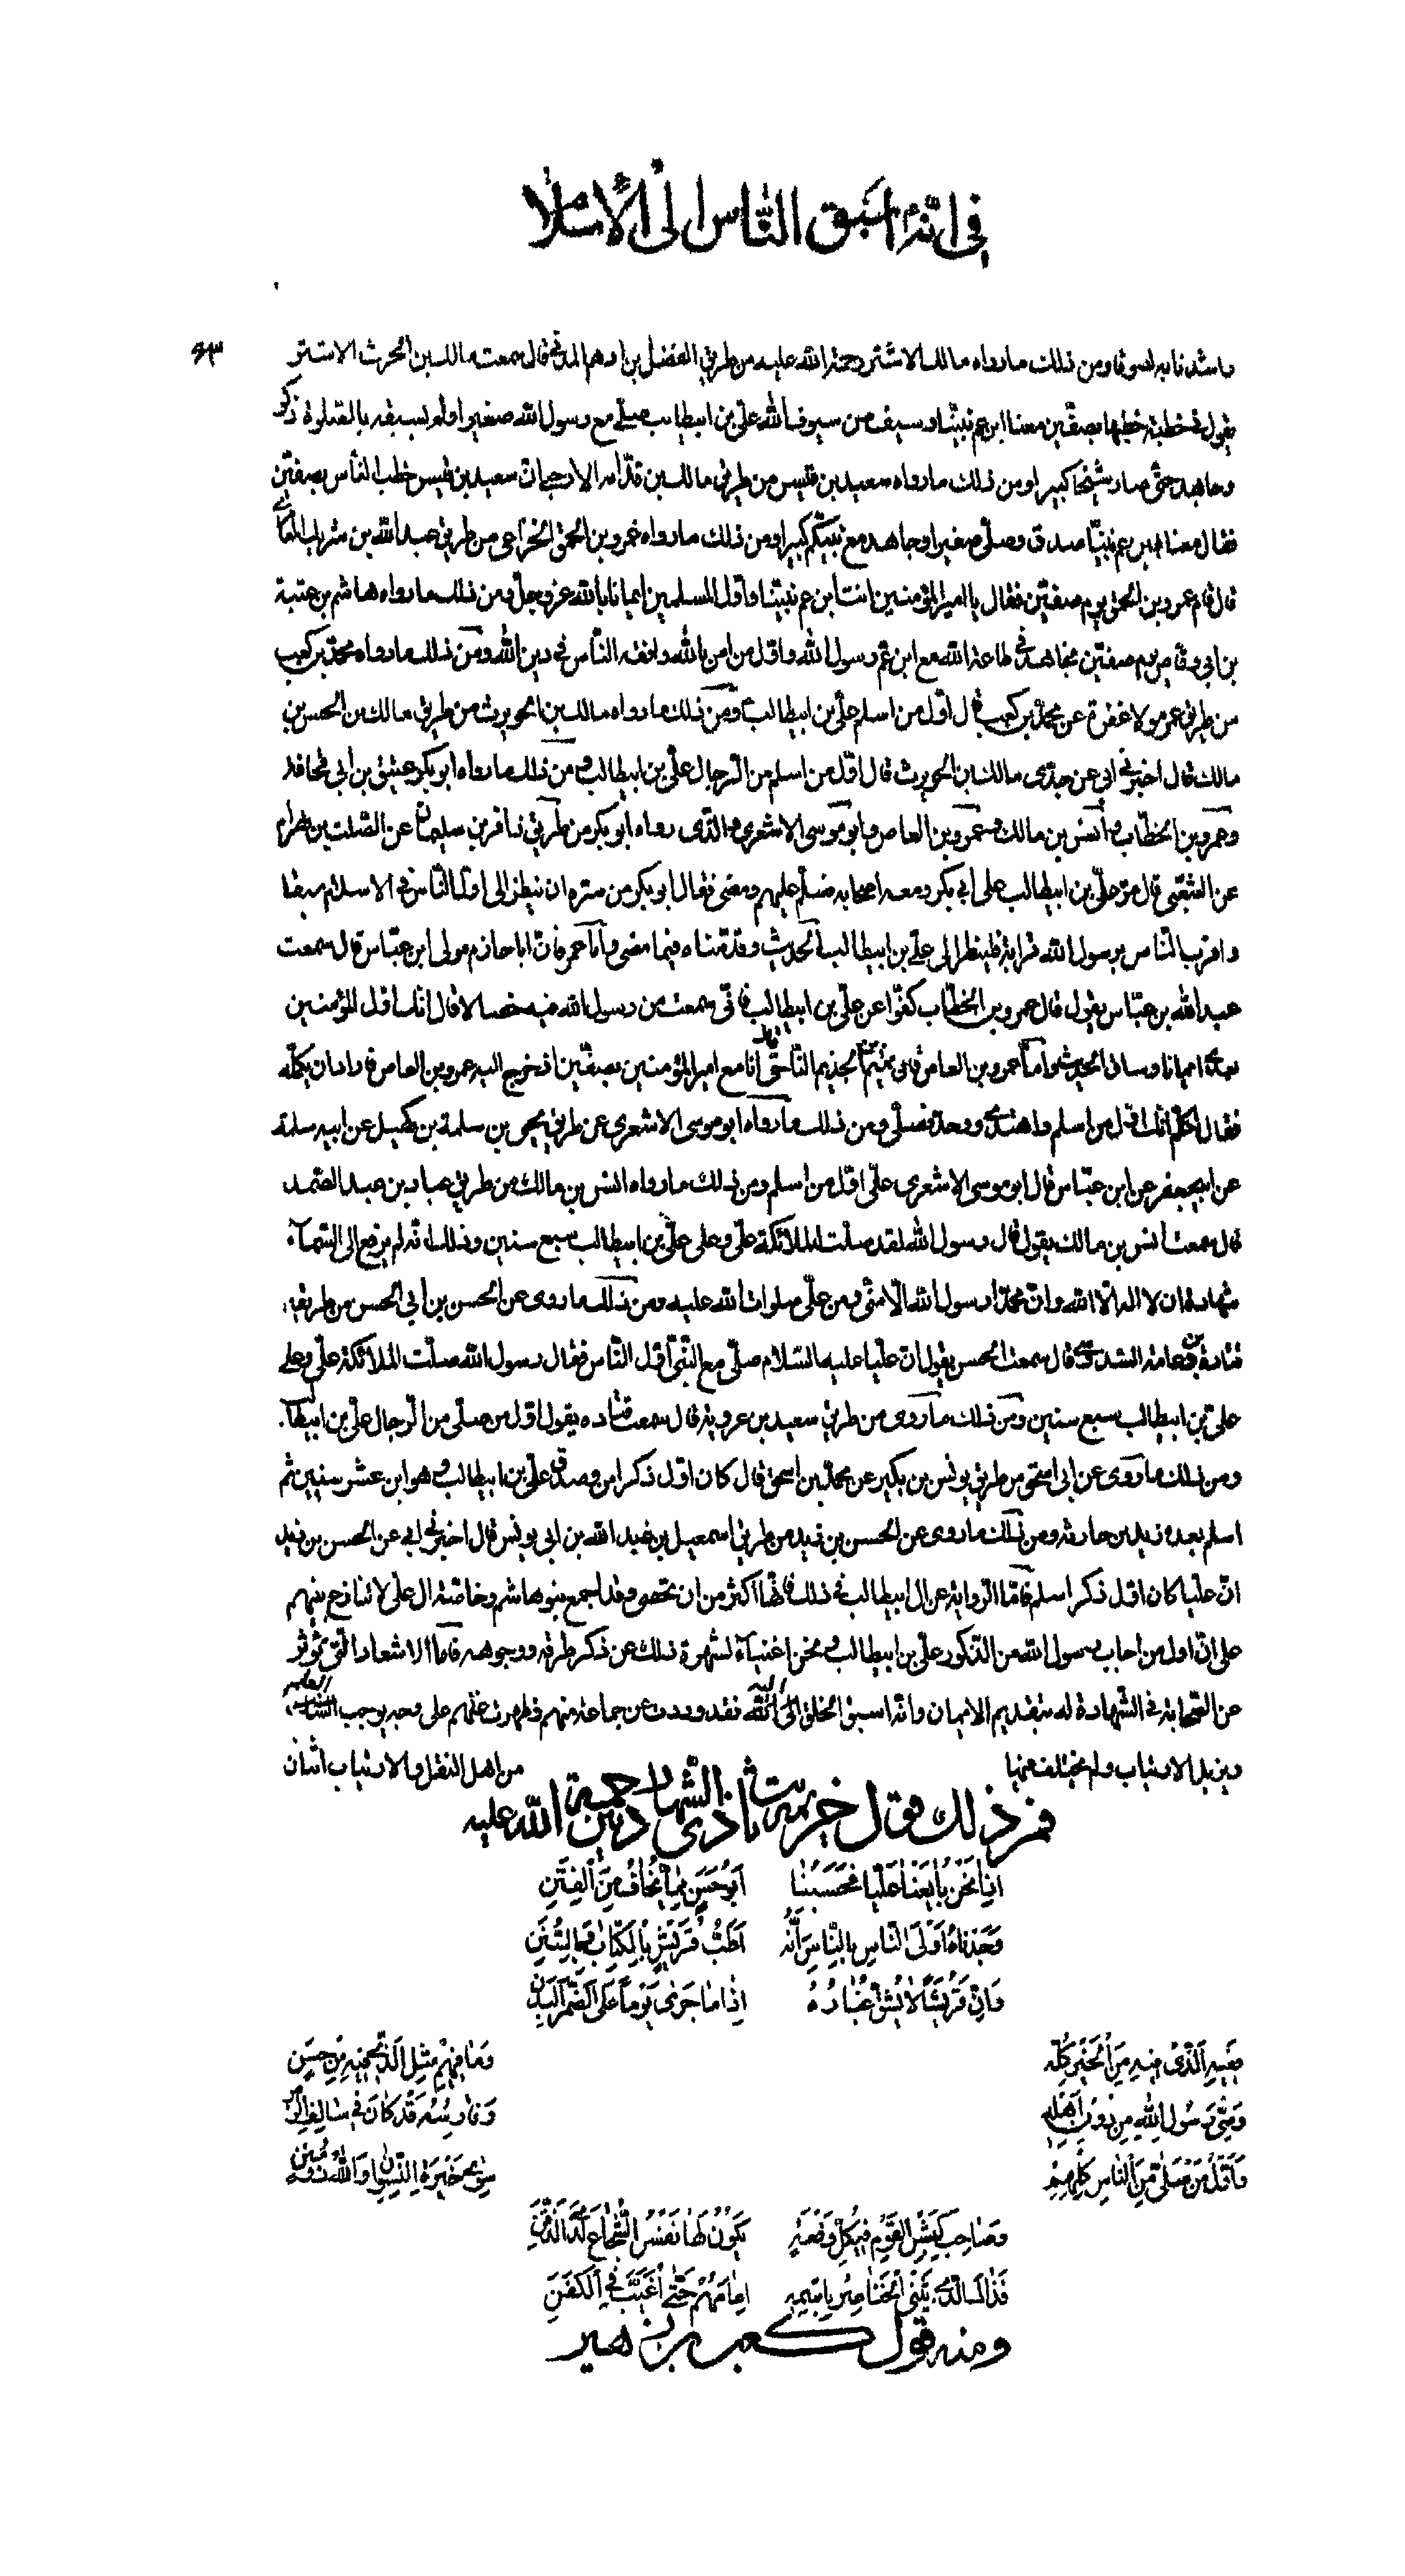 في انه اسبق الناس الى الاسلام
٤٣
ما شدنا به لسوقا ومن ذلك ما رواه مالك الاشتر رحمة الله عليه من طريق الفضل بن ادهم المدني قال سمعت مالك بن الحرث الاشتر
يقول في خطبة خطبها بصفين معنا ابن عم نبينا وسيف من سيوف الله علي بن ابيطالب صلى مع رسول الله صغيرا ولم يسبقه بالصلوة ذكر
وجاهد حتى صار شيخا كبيرا ومن ذلك ما رواه سعيد بن قيس من طريق مالك بن قدامه الارحبي ان سعيد بن قيس خطب الناس بصفين
فقال معنا ابن عم نبينا صدق وصلى صغيرا وجاهد مع نبيكم كبيرا ومن ذلك ما رواه عمرو بن الحمق الخزاعي من طريق عبد الله بن شريك العامري
قال قام عمرو بن الحمق يوم صفين فقال يا امير المؤمنين انت ابن عم نبينا واول المسلمين ايمانا بالله عز وجل ومن ذلك ما رواه هاشم بن عتبة
بن ابي وقاص يوم صفين نجاهد في طاعة الله مع ابن عم رسول الله واول من امن بالله وافقه الناس في دين الله ومن ذلك ما رواه محمد بن كعب
من طريق عمر مولا غفرة عن محمد بن كعب قال اول من اسلم علي بن ابيطالب ومن ذلك ما رواه مالك بن الحويرث من طريق مالك بن الحسن بن
مالك قال اخبرني ابي عن جدي مالك بن الحويرث قال اول من اسلم من الرجال علي بن ابيطالب ومن ذلك ما رواه ابو بكر عتيق بن ابي قحافه
وعمر بن الخطاب وانس بن مالك وعمرو بن العاص وابو موسى الاشعري والذي رواه ابو بكر من طريق زافر بن سليمان عن الصلت بن بهرام
عن الشعبي قال مر علي بن ابيطالب على ابي بكر ومعه اصحابه فسلم عليهم ومضى فقال ابو بكر من سره ان ينظر الى اول الناس في الاسلام سبقا
واقرب الناس برسول الله قرابة فلينظر الى علي بن ابيطالب الحديث وقد قدمناه فيما مضى واما عمر فان ابا حازم مولى ابن عباس قال سمعت
عبد الله بن عباس يقول قال عمر بن الخطاب كفوا عن علي بن ابيطالب فاني سمعت من رسول الله فيه خصالا قال انك اول المؤمنين
بعدي ايمانا وساق الحديث واما عمرو بن العاص فان تميم بن جذيم الناجي قال انا مع امير المؤمنين بصفين اذ خرج اليه عمرو بن العاص فاراد ان يكلمه
فقال اول من اسلم واهتدى ووحد وصلى ومن ذلك ما رواه ابو موسى الاشعري عن طريق يحيى بن سلمة بن كهيل عن ابيه سلمة
عن ابيجعفر عن ابن عباس قال ابو موسى الاشعري علي اول من اسلم ومن ذلك ما رواه انس بن مالك من طريق عباد بن عبد الصمد
قال سمعت انس بن مالك يقول قال رسول الله لقد صلت الملائكة علي وعلى علي بن ابيطالب سبع سنين وذلك انه لم يرفع الى السماء
شهادة ان لا اله الا الله وان محمدا رسول الله الا مني ومن علي صلوات الله عليه ومن ذلك ما روى عن الحسن بن ابي الحسن من طريق
قتادة بن دعامة السدوسي قال سمعت الحسن يقول ان عليا عليه السلام صلى مع النبي اول الناس فقال رسول الله صلت الملائكة علي وعلى
علي بن ابيطالب سبع سنين ومن ذلك ما روى من طريق سعيد بن عروبة قال سمعت قتاده يقول اول من صلى من الرجال علي بن ابيطالب
ومن ذلك ما روى عن ابي اسحق من طريق يونس بن بكير عن محمد بن اسحق قال كان اول ذكر امن وصدق علي بن ابيطالب وهو ابن عشر سنين ثم
اسلم بعده زيد بن حارثه ومن ذلك ما روى عن الحسن بن زيد من طريق اسمعيل بن عبد الله بن ابي يونس قال اخبرني ابي عن الحسن بن زيد
ان عليا كان اول ذكر اسلم فاما الرواية عن ال ابيطالب في ذلك فانها اكثر من ان تحصى وقد اجمع بنو هاشم وخاصة ال علي لا تنازع بينهم
على ان اول من اجاب رسول الله من الذكور علي بن ابيطالب ونحن اغنياء لشهرة ذلك عن ذكر طرقه ووجوهه فاما الاشعار التي تؤثر
عن الصحابة في الشهادة له بتقديم الايمان وانه اسبق الخلق اليه فقد وردت عن جماعة منهم وظهرت عنهم على وجه يوجب العلم
ويزيل الارتياب ولم يختلف فيها من اهل النقل والارتياب اثنان
فمن ذلك قول خزيمة بن ثابت ذي الشهادتين رحمة الله عليه
اذا نحن بايعنا عليا فحسبنا ابو حسن مما نخاف من الفتن
وجدناه اولى الناس بالناس انه اطب قريش بالكتاب وبالسنن
وان قريشا لا يشق غباره اذا ما جرى يوما على الضمر البدن
ففيه الذي فيه من الخير كله وما فيهم مثل الذي فيه من حسن
وصي رسول الله من دون اهله وفارسه قد كان في سالف الزمن
واول من صلى من الناس كلهم سوى خيرة النسوان والله ذو منن
وصاحب كبش القوم في كل وقعة يكون لها نفس الشجاع لدى الذقن
فذاك الذي تثنى الخناصر باسمه امامهم حتى اغيب في الكفن
ومنه قول كعب بن زهير